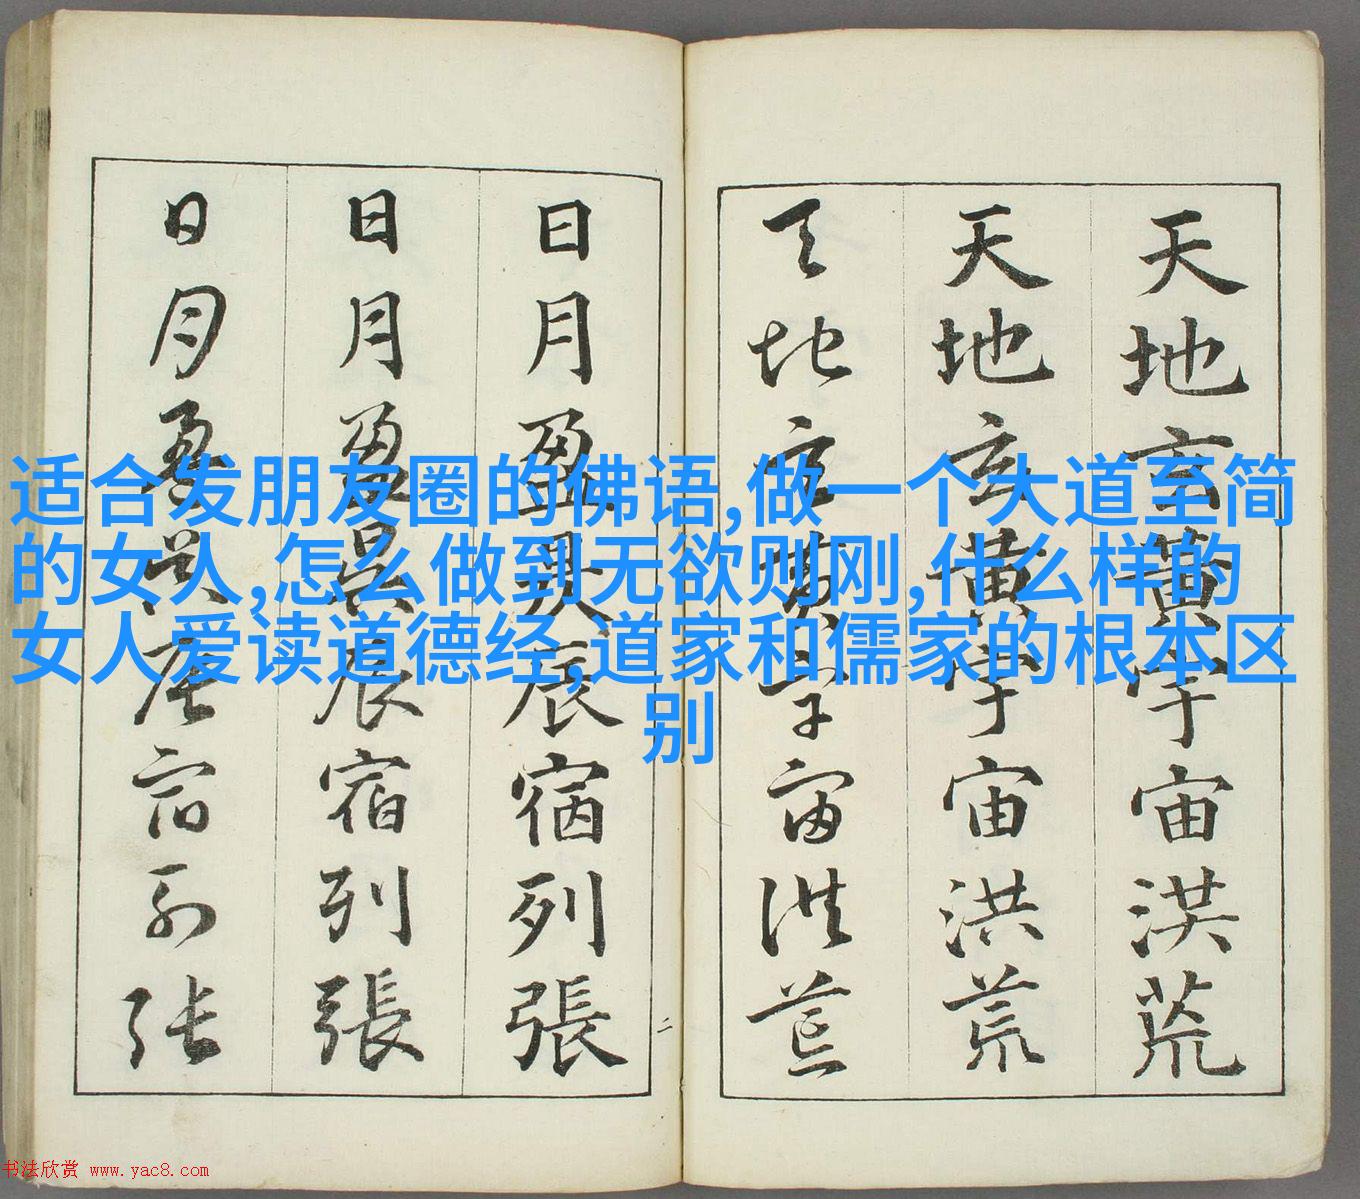 适合发朋友圈的佛语,做一个大道至简
的女人,怎么做到无欲则刚,什么样的
女人爱读道德经,道家和儒家的根本区
别
天地玄黄宇宙洪荒
天地玄黄宇宙洪荒
天地玄黄宇宙洪荒
日月盈昃辰宿列張
日月盈昃辰宿列張
日月盈昃辰宿列张
二
书法欣赏 www.yac8.com